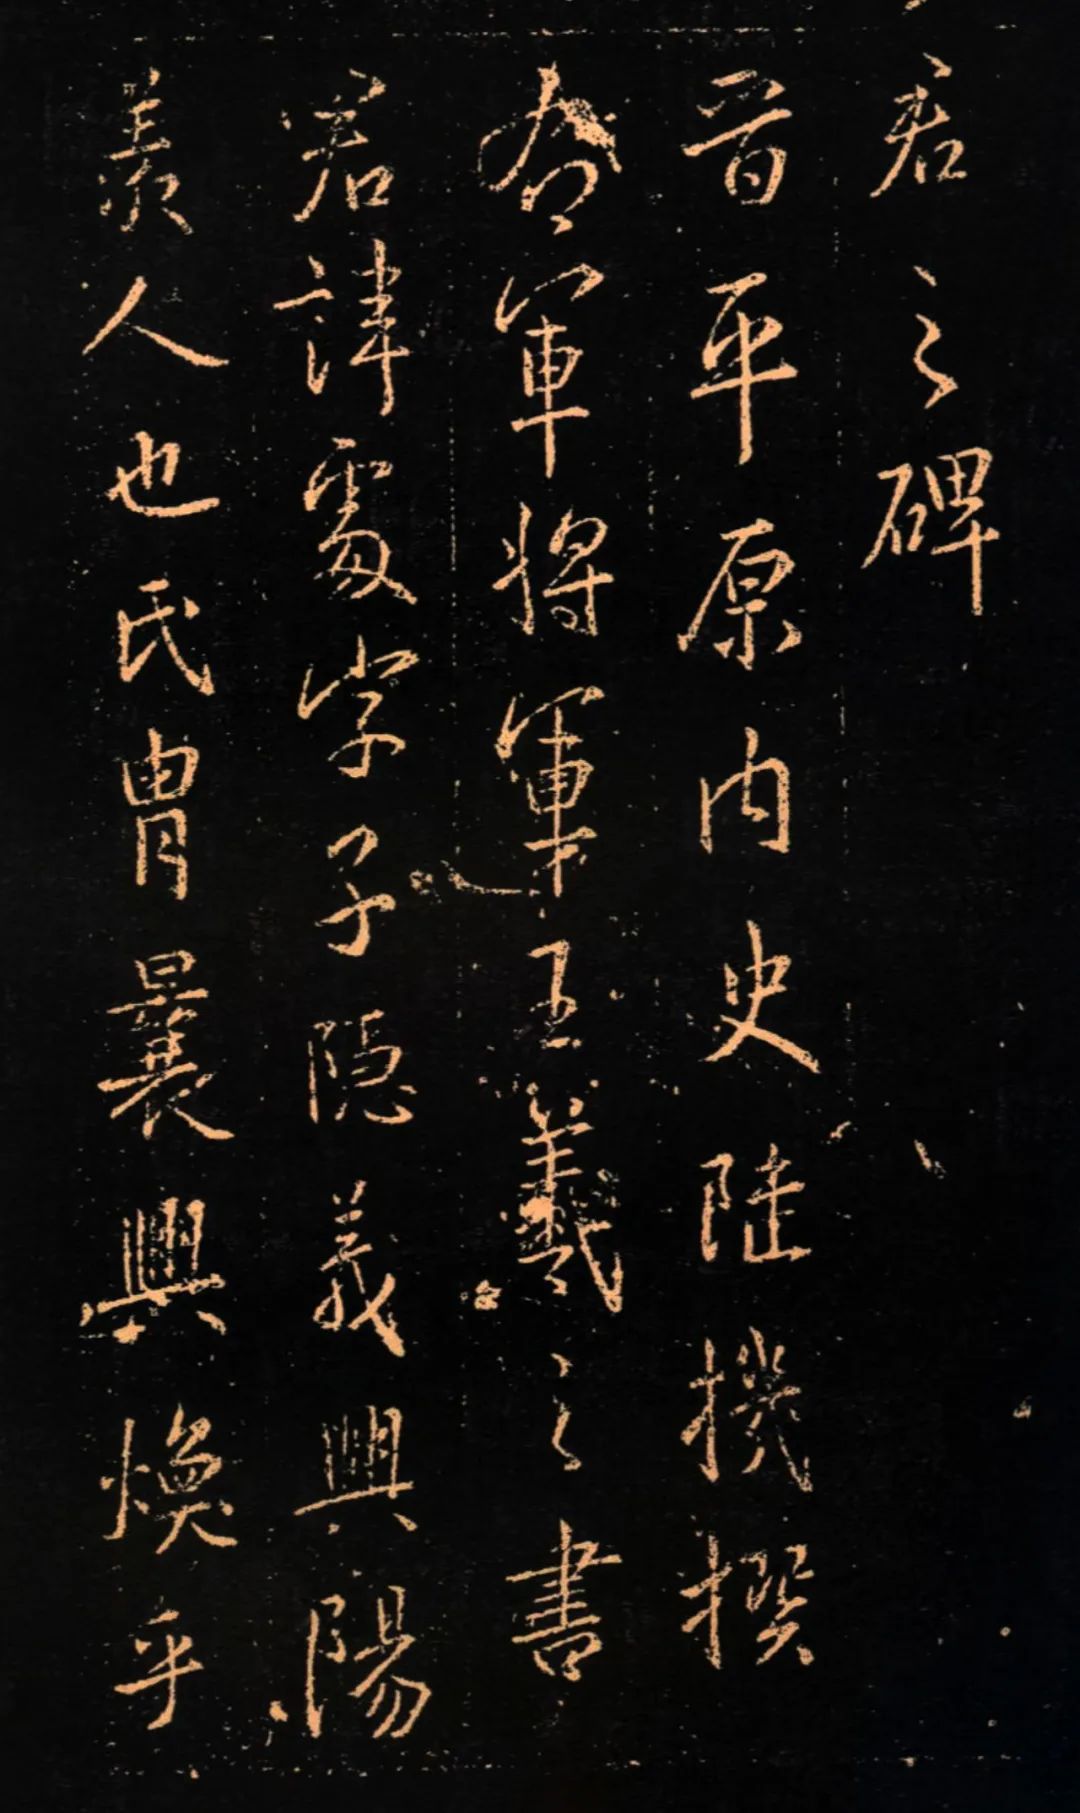 君之碑
晉平原内史陸機撰
右軍將軍王羲之書
君諱處字子隱義興陽
羨人也氏胄曩興煥乎